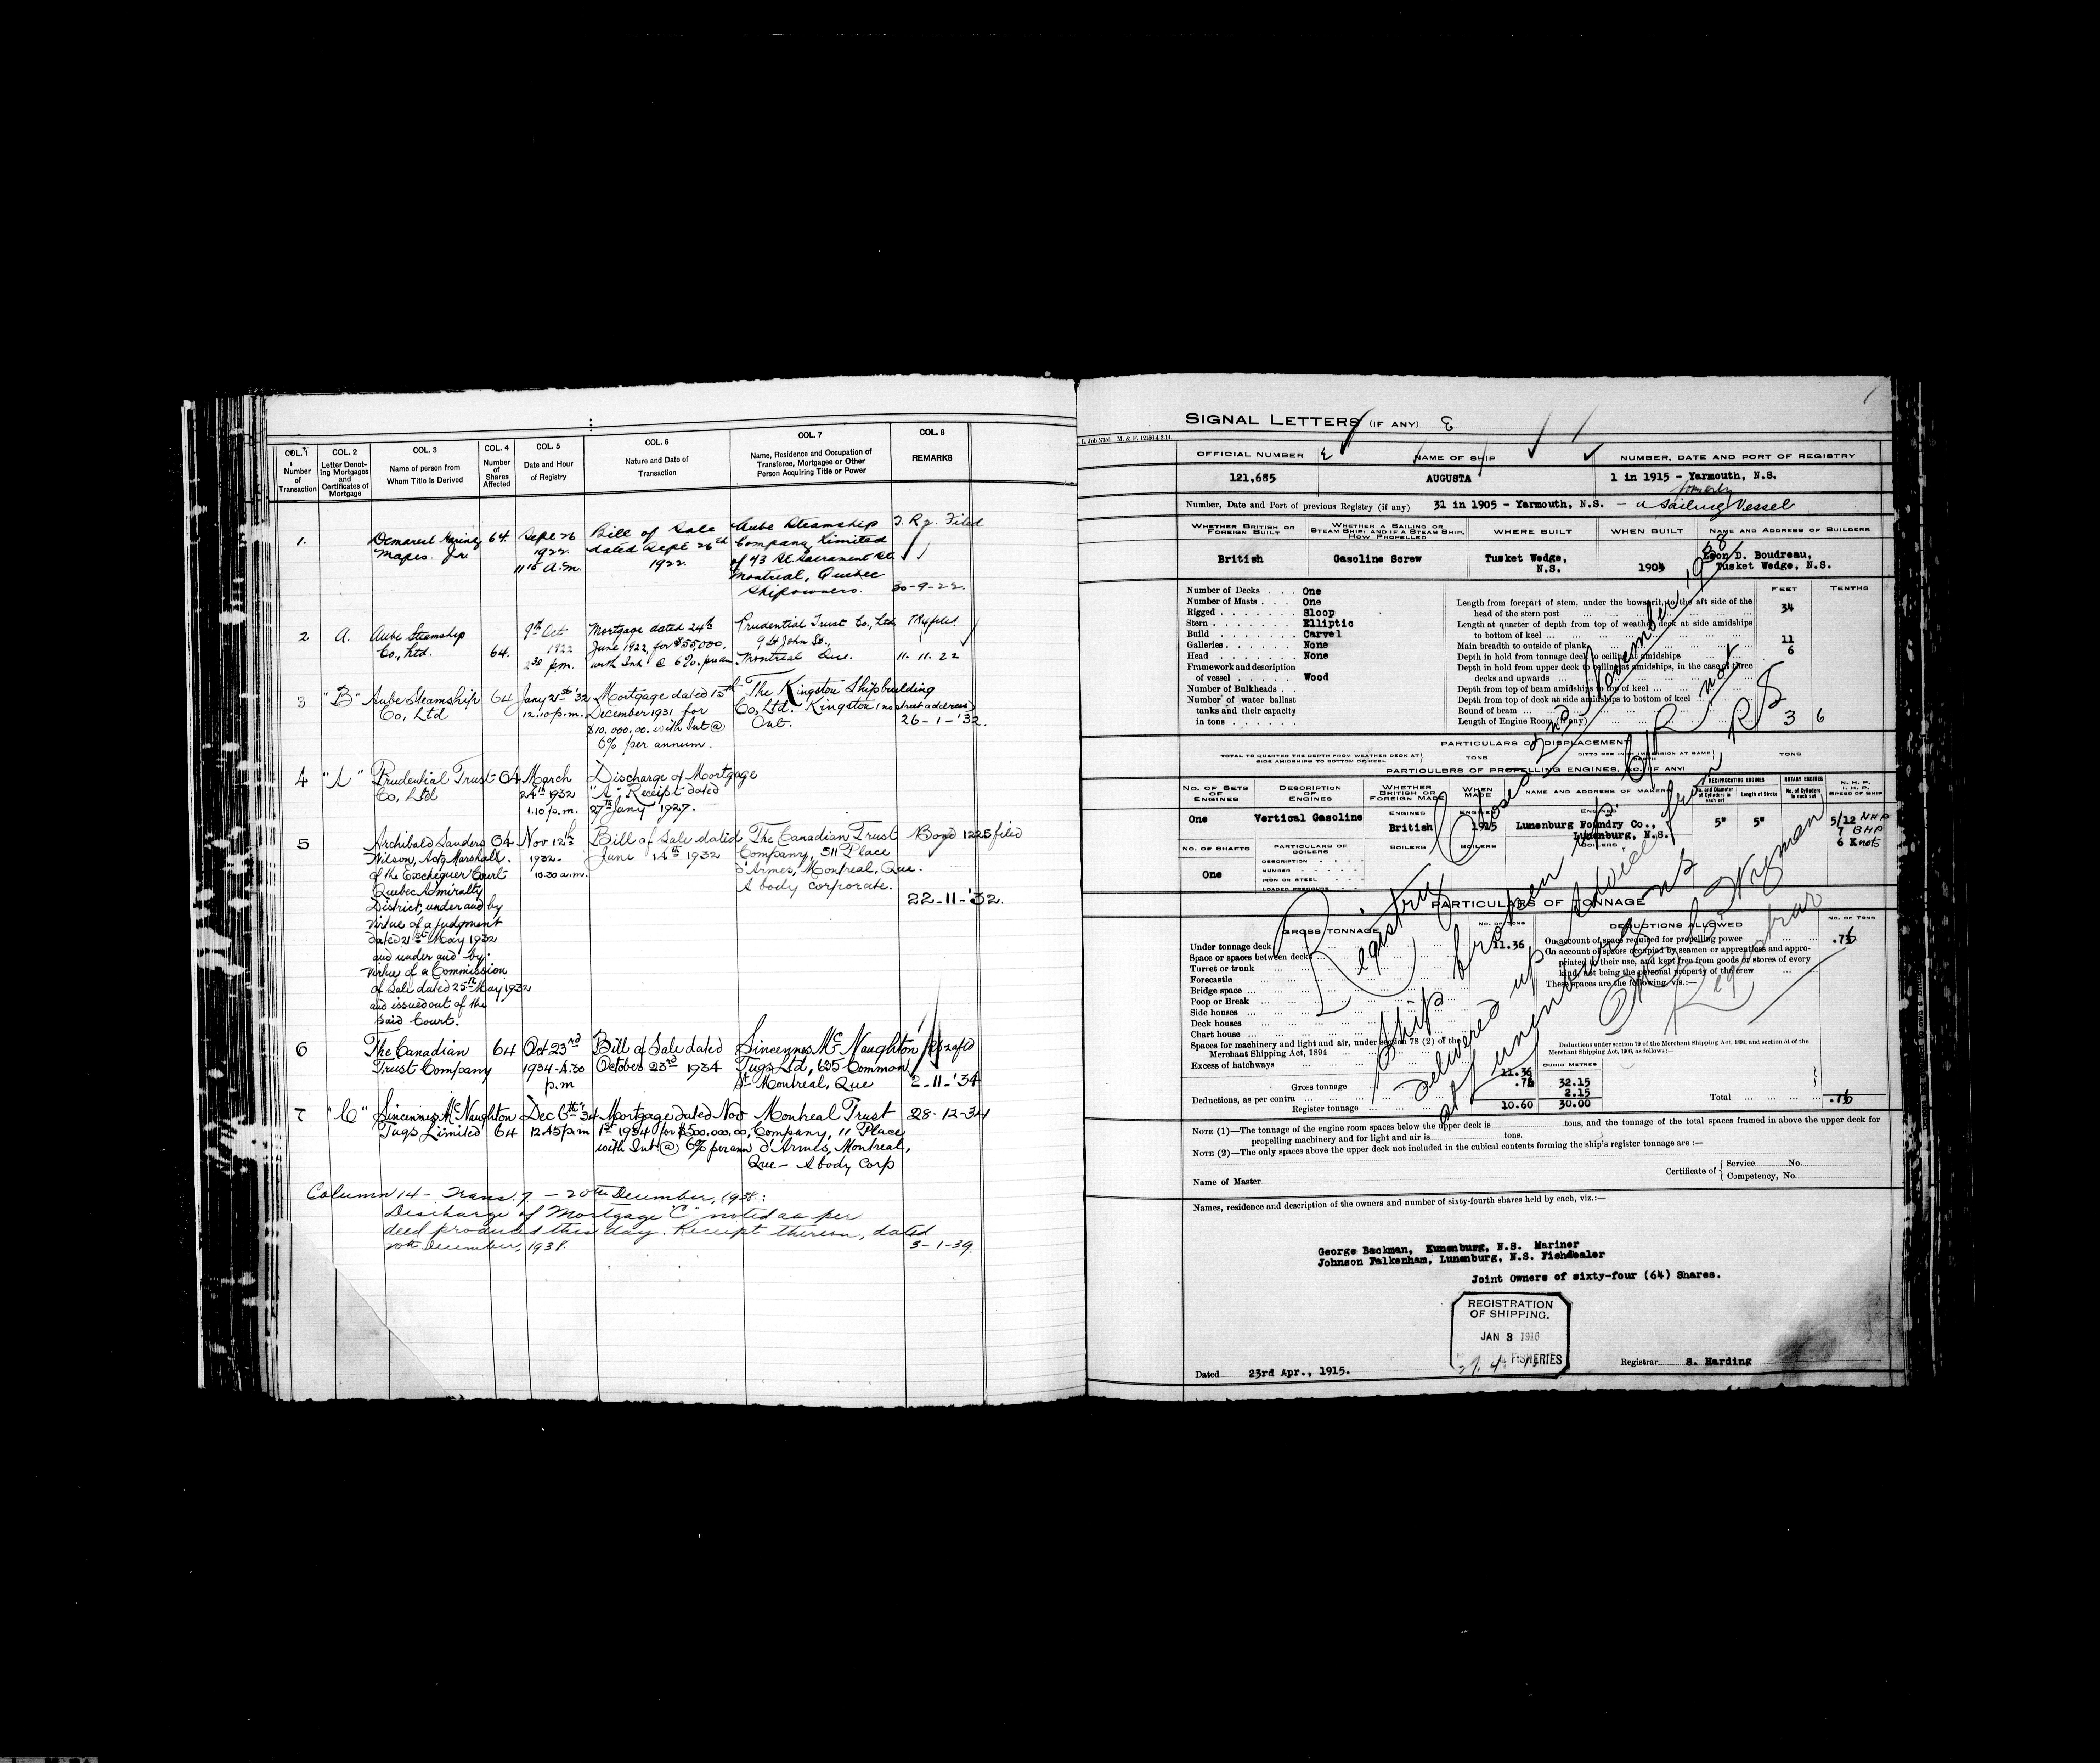 COL. 1
Number of Transaction
COL. 2
Letter Denoting Mortgages and Certificates of Mortgage
COL. 3
Name of person from Whom Title is Derived
COL. 4
Number of Shares Affected
COL. 5
Date and Hour of Registry
COL. 6
Nature and Date of Transaction
COL. 7
Name, Residence and Occupation of Transferee, Mortgagee or Other Person Acquiring Title or Power
COL. 8
REMARKS
1.
Demarest
Mapes. Jr.
64.
Sept 26
1922.
11 15 A.M.
Bill of Sale
dated Sept 26th
1922.
Aube Steamship
Company Limited
of 43 St. Sacrament St.
Montreal, Quebec
Shipowners.
Filed
30-9-22.
2
A.
Aube Steamship
Co., Ltd.
64.
9th Oct
1922
2 30 p.m.
Mortgage dated 24th
June 1922, for $55,000,
with Int. @ 6% per ann.
Prudential Trust Co., Ltd
9 St John St.,
Montreal Que.
11. 11. 22
3
"B"
Aube Steamship
Co, Ltd
64
Jany 21st '32
12.10 p.m.
Mortgage dated 15th
December 1931 for
$10.000.00. with Int @
6% per annum.
The Kingston Shipbuilding
Co, Ltd. Kingston (no street address)
Ont.
26-1-'32.
4
"A"
Prudential Trust
Co, Ltd
64
March
24th 1932
1.10 p.m.
Discharge of Mortgage
"A" Receipt dated
27th Jany 1927.
5
Archibald Sanders
Wilson, Actg Marshall.
of the Exchequer Court
Quebec Admiralty
District, under and by
virtue of a judgment
dated 21st May 1932
and under and by
virtue of a Commission
of Sale dated 25th May 1932
and issued out of the
said Court.
64
Nov 12th
1932.
10.30 a.m.
Bill of Sale dated
June 14th 1932
The Canadian Trust
Company, 511 Place
d'Armes, Montreal, Que.
A body corporate.
Bond 1225 filed
22-11-'32.
6
The Canadian
Trust Company
64
Oct 23rd
1934-4.30
p.m
Bill of Sale dated
October 23rd 1934
Sincennes McNaughton
Tugs Ltd, 655 Common
St Montreal, Que
2-11-'34
7
"C"
Sincennes McNaughton
Tugs Limited
64
Dec 6th '34
12.45 p.m
Mortgage dated Nov
1st 1934 for $500.000.00,
with Int. @ 6% per ann
Montreal Trust
Company, 11 Place
d'Armes, Montreal,
Que - A body Corp
28-12-34
Column 14 - Trans. 7. - 20th December, 1938:
Discharge of Mortgage "C" noted as per
deed produced this day. Receipt thereon, dated
20th December, 1938.
3-1-39.
SIGNAL LETTERS (IF ANY)
OFFICIAL NUMBER
NAME OF SHIP
NUMBER, DATE AND PORT OF REGISTRY
121,685
AUGUSTA
1 in 1915 - Yarmouth, N.S.
Number, Date and Port of previous Registry (if any)
31 in 1905 - Yarmouth, N.S. - formerly a Sailing Vessel
WHETHER BRITISH OR FOREIGN BUILT
WHETHER A SAILING OR STEAM SHIP, AND IF A STEAM SHIP, HOW PROPELLED
WHERE BUILT
WHEN BUILT
NAME AND ADDRESS OF BUILDERS
British
Gasoline Screw
Tusket Wedge, N.S.
Leon D. Boudreau,
Tusket Wedge, N.S.
Number of Decks One
Number of Masts One
Rigged Sloop
Stern Elliptic
Build Carvel
Galleries None
Head None
Framework and description of vessel Wood
Number of Bulkheads
Number of water ballast tanks and their capacity in tons
FEET
TENTHS
Length from forepart of stem, under the bowsprit, to the aft side of the head of the stern post 34
Length at quarter of depth from top of weather deck at side amidships to bottom of keel
Main breadth to outside of plank 11
Depth in hold from tonnage deck to ceiling at amidships 6
Depth in hold from upper deck to ceiling at amidships, in the case of three decks and upwards
Depth from top of beam amidships to top of keel
Depth from top of deck at side amidships to bottom of keel
Round of beam
Length of Engine Room (if any) 3 6
PARTICULARS OF DISPLACEMENT
TOTAL TO QUARTER THE DEPTH FROM WEATHER DECK AT SIDE AMIDSHIPS TO BOTTOM OF KEEL
TONS
TONS
PARTICULARS OF PROPELLING ENGINES, &C. (IF ANY)
NO. OF SETS OF ENGINES
DESCRIPTION OF ENGINES
WHETHER BRITISH OR FOREIGN MADE
WHEN MADE
NAME AND ADDRESS OF MAKERS
RECIPROCATING ENGINES
No. and Diameter of Cylinders in each set
Length of Stroke
ROTARY ENGINES
No. of Cylinders in each set
N. H. P.
I. H. P.
SPEED OF SHIP
One
Vertical Gasoline
ENGINES
British
1915
Lunenburg Foundry Co.,
Lunenburg, N.S.
5"
5"
5/12 NHP
7 BHP
6 Knots
NO. OF SHAFTS
PARTICULARS OF BOILERS
BOILERS
BOILERS
BOILERS
One
DESCRIPTION
NUMBER
IRON OR STEEL
LOADED PRESSURE
PARTICULARS OF TONNAGE
GROSS TONNAGE
NO. OF TONS
DEDUCTIONS ALLOWED
NO. OF TONS
Under tonnage deck 11.36
Space or spaces between decks
Turret or trunk
Forecastle
Bridge space
Poop or Break
Side houses
Deck houses
Chart house
Spaces for machinery and light and air, under section 78 (2) of the Merchant Shipping Act, 1894
Excess of hatchways
On account of space required for propelling power
On account of spaces occupied by seamen or apprentices and appropriated to their use, and kept free from goods or stores of every kind, not being the personal property of the crew
These spaces are the following, viz.:—
Deductions under section 79 of the Merchant Shipping Act, 1894, and section 54 of the Merchant Shipping Act, 1906, as follows:—
CUBIC METRES
Gross tonnage 11.36 32.15
Deductions, as per contra 2.15
Register tonnage 10.60 30.00
Total
Registry Closed 2nd November, 1938
Ship broken up. C of R not
delivered up. Advice from R S
at Lunenburg N S
Wyman
Registrar
NOTE (1)—The tonnage of the engine room spaces below the upper deck is tons, and the tonnage of the total spaces framed in above the upper deck for propelling machinery and for light and air is tons.
NOTE (2)—The only spaces above the upper deck not included in the cubical contents forming the ship's register tonnage are :—
Name of Master
Certificate of
Service No.
Competency, No.
Names, residence and description of the owners and number of sixty-fourth shares held by each, viz.:—
George Backman, Lunenburg, N.S. Mariner
Johnson Falkenham, Lunenburg, N.S. Fishdealer
Joint Owners of sixty-four (64) Shares.
REGISTRATION
OF SHIPPING.
JAN 3 1916
FISHERIES
Dated 23rd Apr., 1915.
Registrar S. Harding